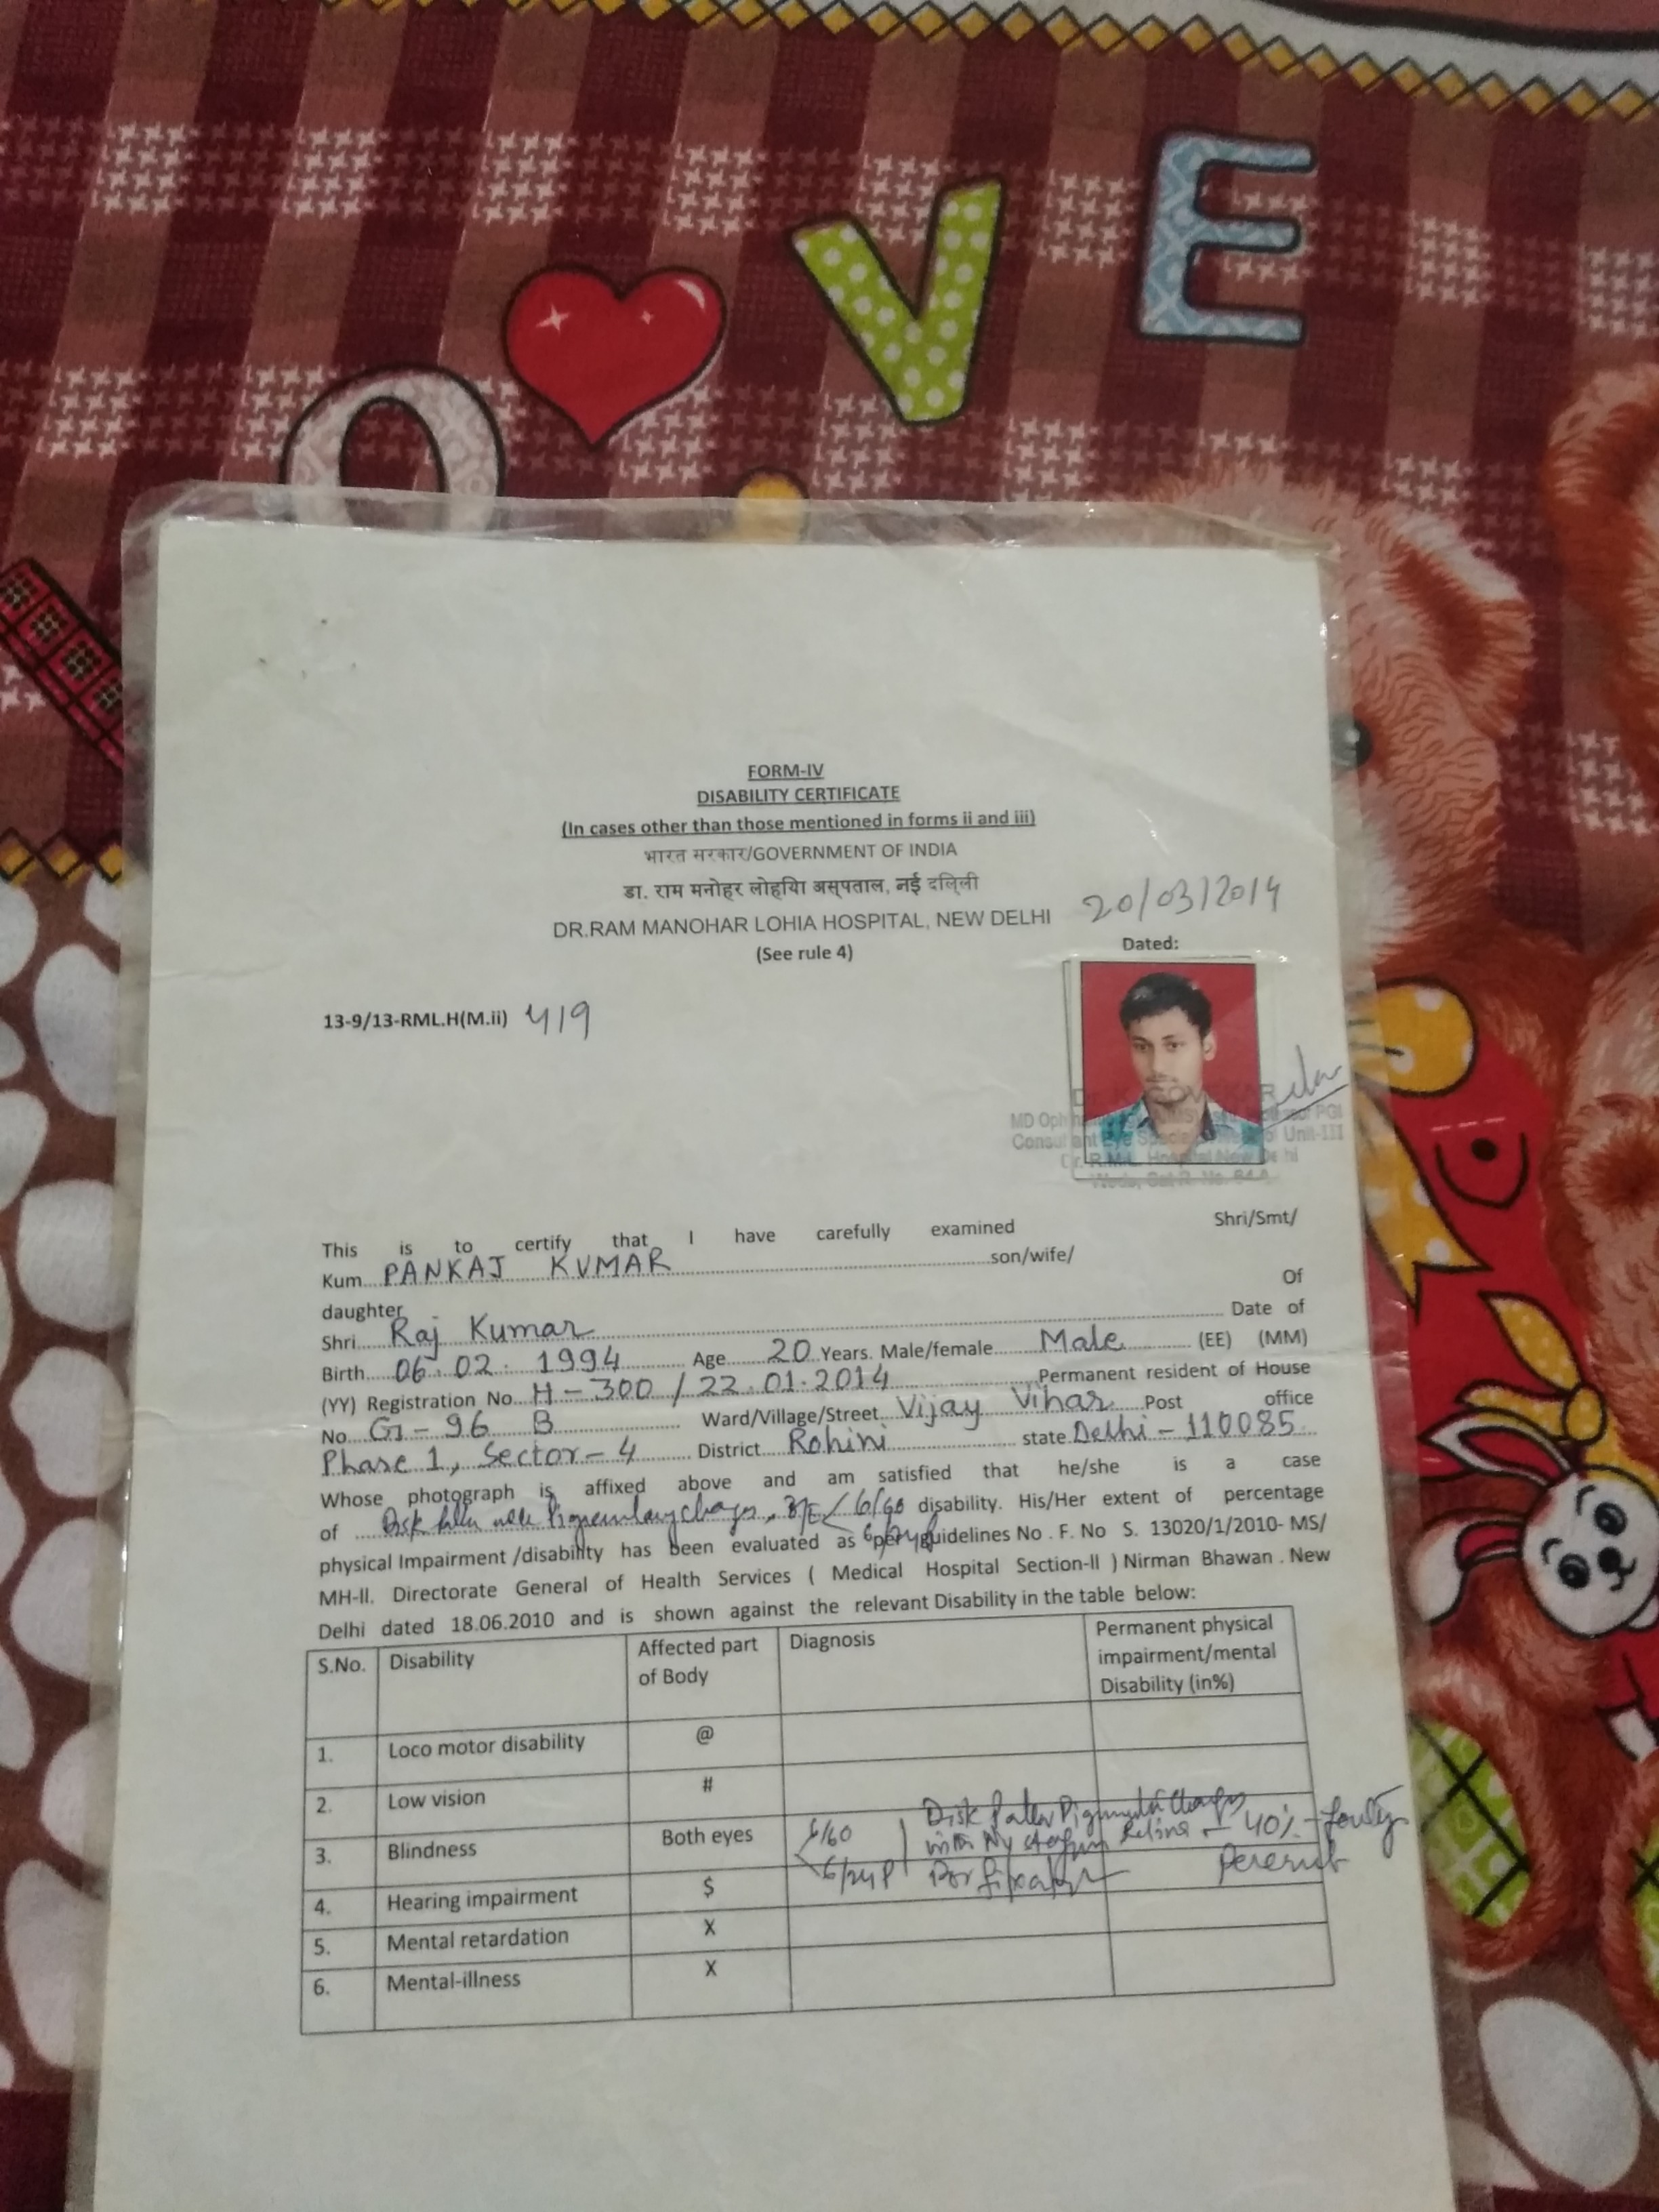 O V E
FORM-IV
DISABILITY CERTIFICATE
(In cases other than those mentioned in forms ii and iii)
भारत सरकार/GOVERNMENT OF INDIA
डा. राम मनोहर लोहिया अस्पताल, नई दिल्ली
DR.RAM MANOHAR LOHIA HOSPITAL, NEW DELHI
20/03/2014
(See rule 4)
Dated:
13-9/13-RML.H(M.ii) 419
MD
Unit-III
This is to certify that I have carefully examined Shri/Smt/
Kum PANKAJ KUMAR son/wife/
daughter Of
Shri Raj Kumar Date of
Birth 06.02.1994 Age 20 Years. Male/female Male (EE) (MM)
(YY) Registration No H-300/22.01.2014 Permanent resident of House
No G1-96 B Ward/Village/Street Vijay Vihar Post office
Phase 1, Sector-4 District Rohini state Delhi-110085
Whose photograph is affixed above and am satisfied that he/she is a case
of 6/60 disability. His/Her extent of percentage
physical Impairment /disability has been evaluated as per guidelines No . F. No S. 13020/1/2010- MS/
MH-II. Directorate General of Health Services ( Medical Hospital Section-II ) Nirman Bhawan . New
Delhi dated 18.06.2010 and is shown against the relevant Disability in the table below:
S.No. Disability Affected part of Body Diagnosis Permanent physical impairment/mental Disability (in%)
1. Loco motor disability @
2. Low vision #
3. Blindness Both eyes 6/60 6/24P Disk 40%
4. Hearing impairment $
5. Mental retardation X
6. Mental-illness X